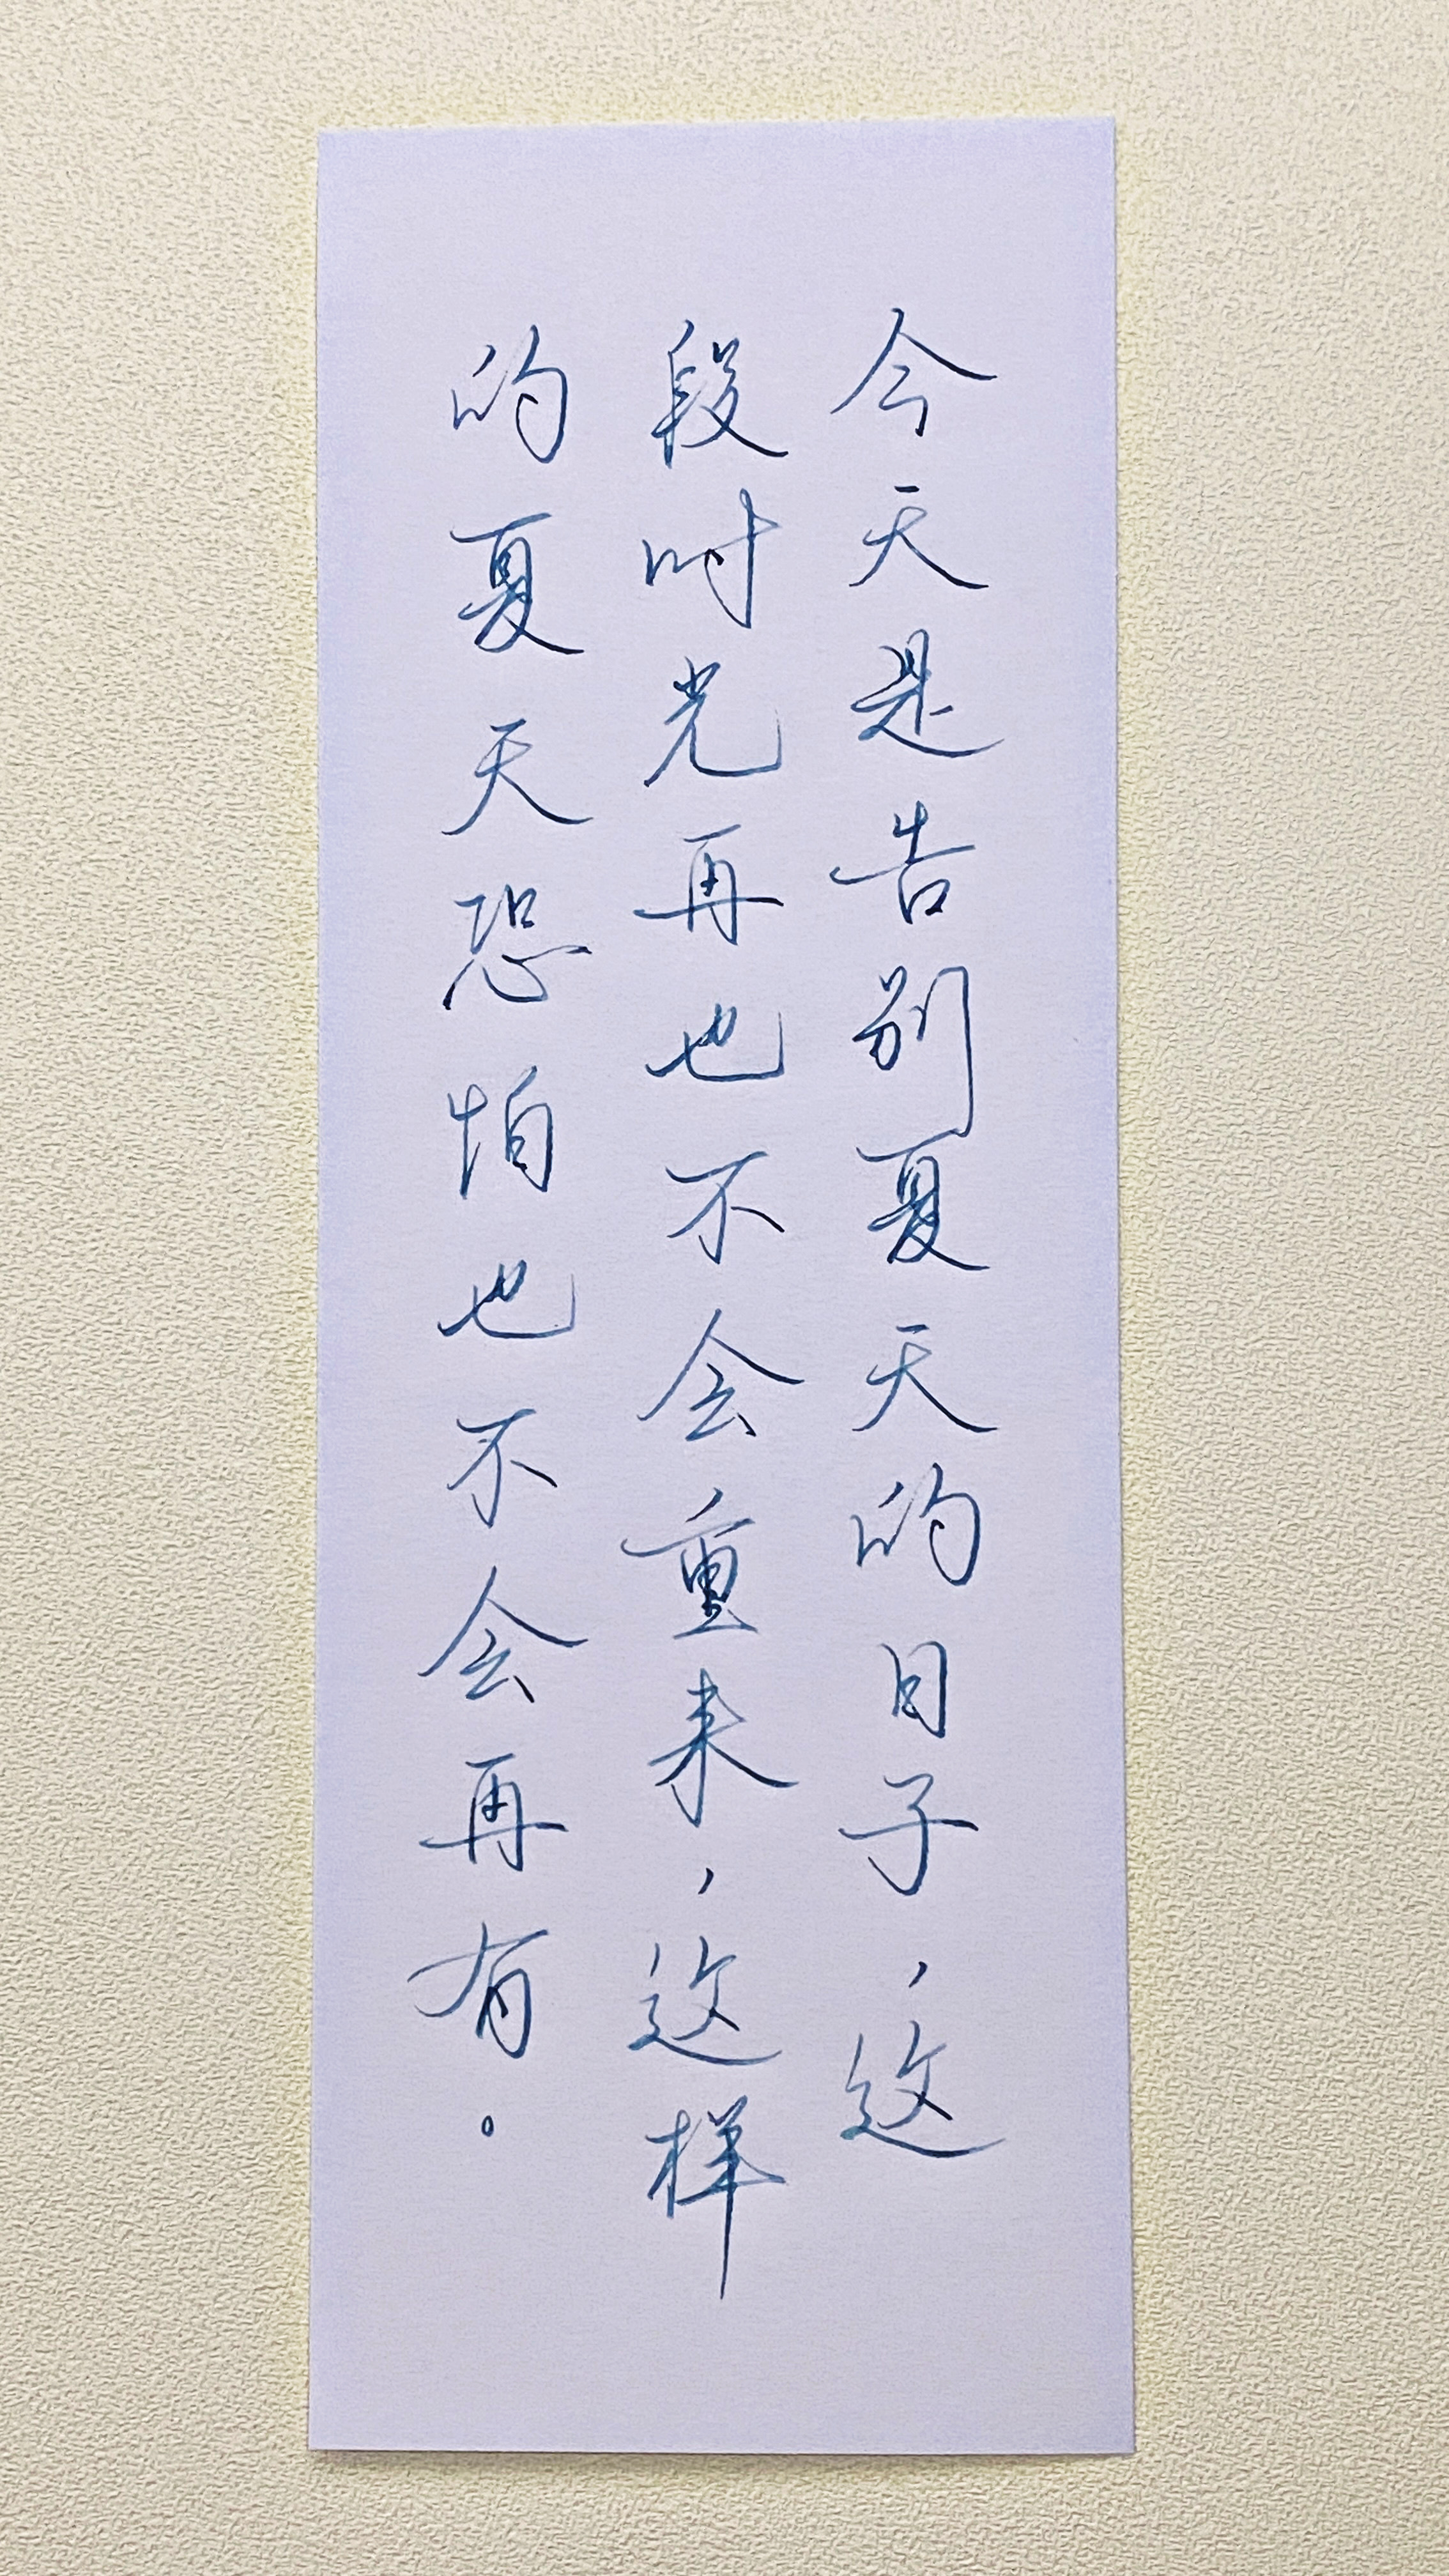 今天是告别夏天的日子，这
段时光再也不会重来，这样
的夏天恐怕也不会再有。